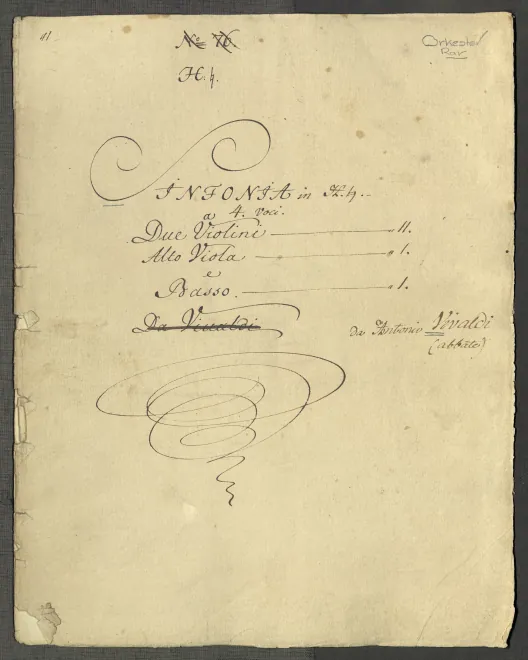 No 76.
Orkester
Rar
H. h.
SINFONIA in H. h.
a 4. voci.
Due Violini 11.
Alto Viola 1.
e
Basso. 1.
Da Vivaldi
da Antonio Vivaldi
(abbate)